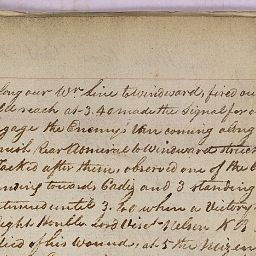 along our Wr Line to windward, fired our
reach at 3.40 made the Signal for o
gage the Enemy's Van coming along
nish Rear Admiral to Windward struck
tacked after them, observed one of the
anding towards Cadiz and 3 standing
ntinued until 3. 0 when a Victory
Right Honble Lord Visct Nelson K B
died of his wounds, at 5 the